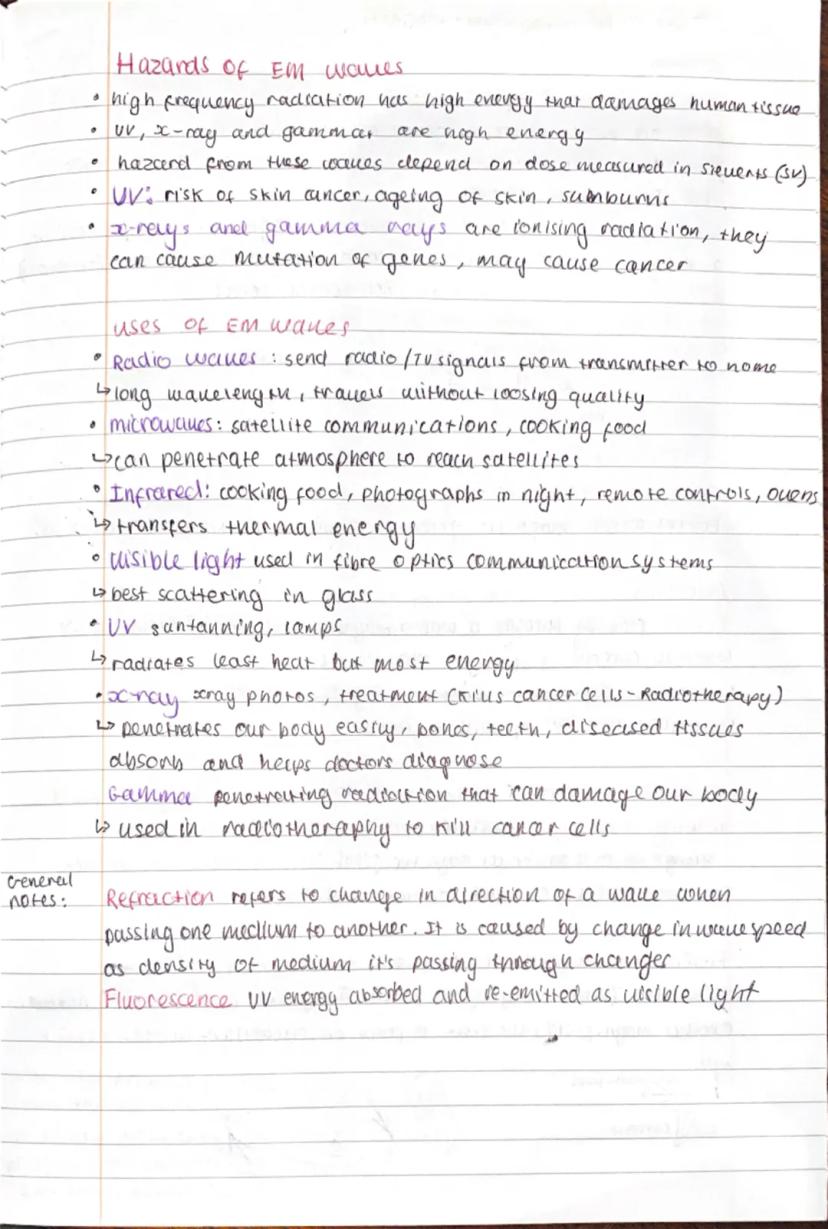 Hazards of EM waves
• high frequency radiation has high energy that damages human tissue
• UV, x-ray and gamma are high energy
• hazard from these waves depend on dose measured in sieverts (Sv)
• UV: risk of skin cancer, ageing of skin, sunburns
• x-rays and gamma rays are ionising radiation, they
can cause mutation of genes, may cause cancer
uses of EM waves
• Radio waves: send radio/TV signals from transmitter to home
↳ long wavelength, travels without loosing quality
• microwaves: satellite communications, cooking food
↳ can penetrate atmosphere to reach satellites
• Infrared: cooking food, photographs in night, remote controls, ovens
↳ transfers thermal energy
• Visible light used in fibre optics communication systems
↳ best scattering in glass
• UV suntanning, lamps
↳ radiates least heat but most energy
• x-ray xray photos, treatment (kills cancer cells - Radiotherapy)
↳ penetrates our body easily, bones, teeth, diseased tissues
absorb and helps doctors diagnose
Gamma penetrating radiation that can damage our body
↳ used in radiotheraphy to kill cancer cells
General
notes:
Refraction refers to change in direction of a wave when
passing one medium to another. It is caused by change in wave speed
as density of medium it's passing through changes
Fluorescence UV energy absorbed and re-emitted as visible light